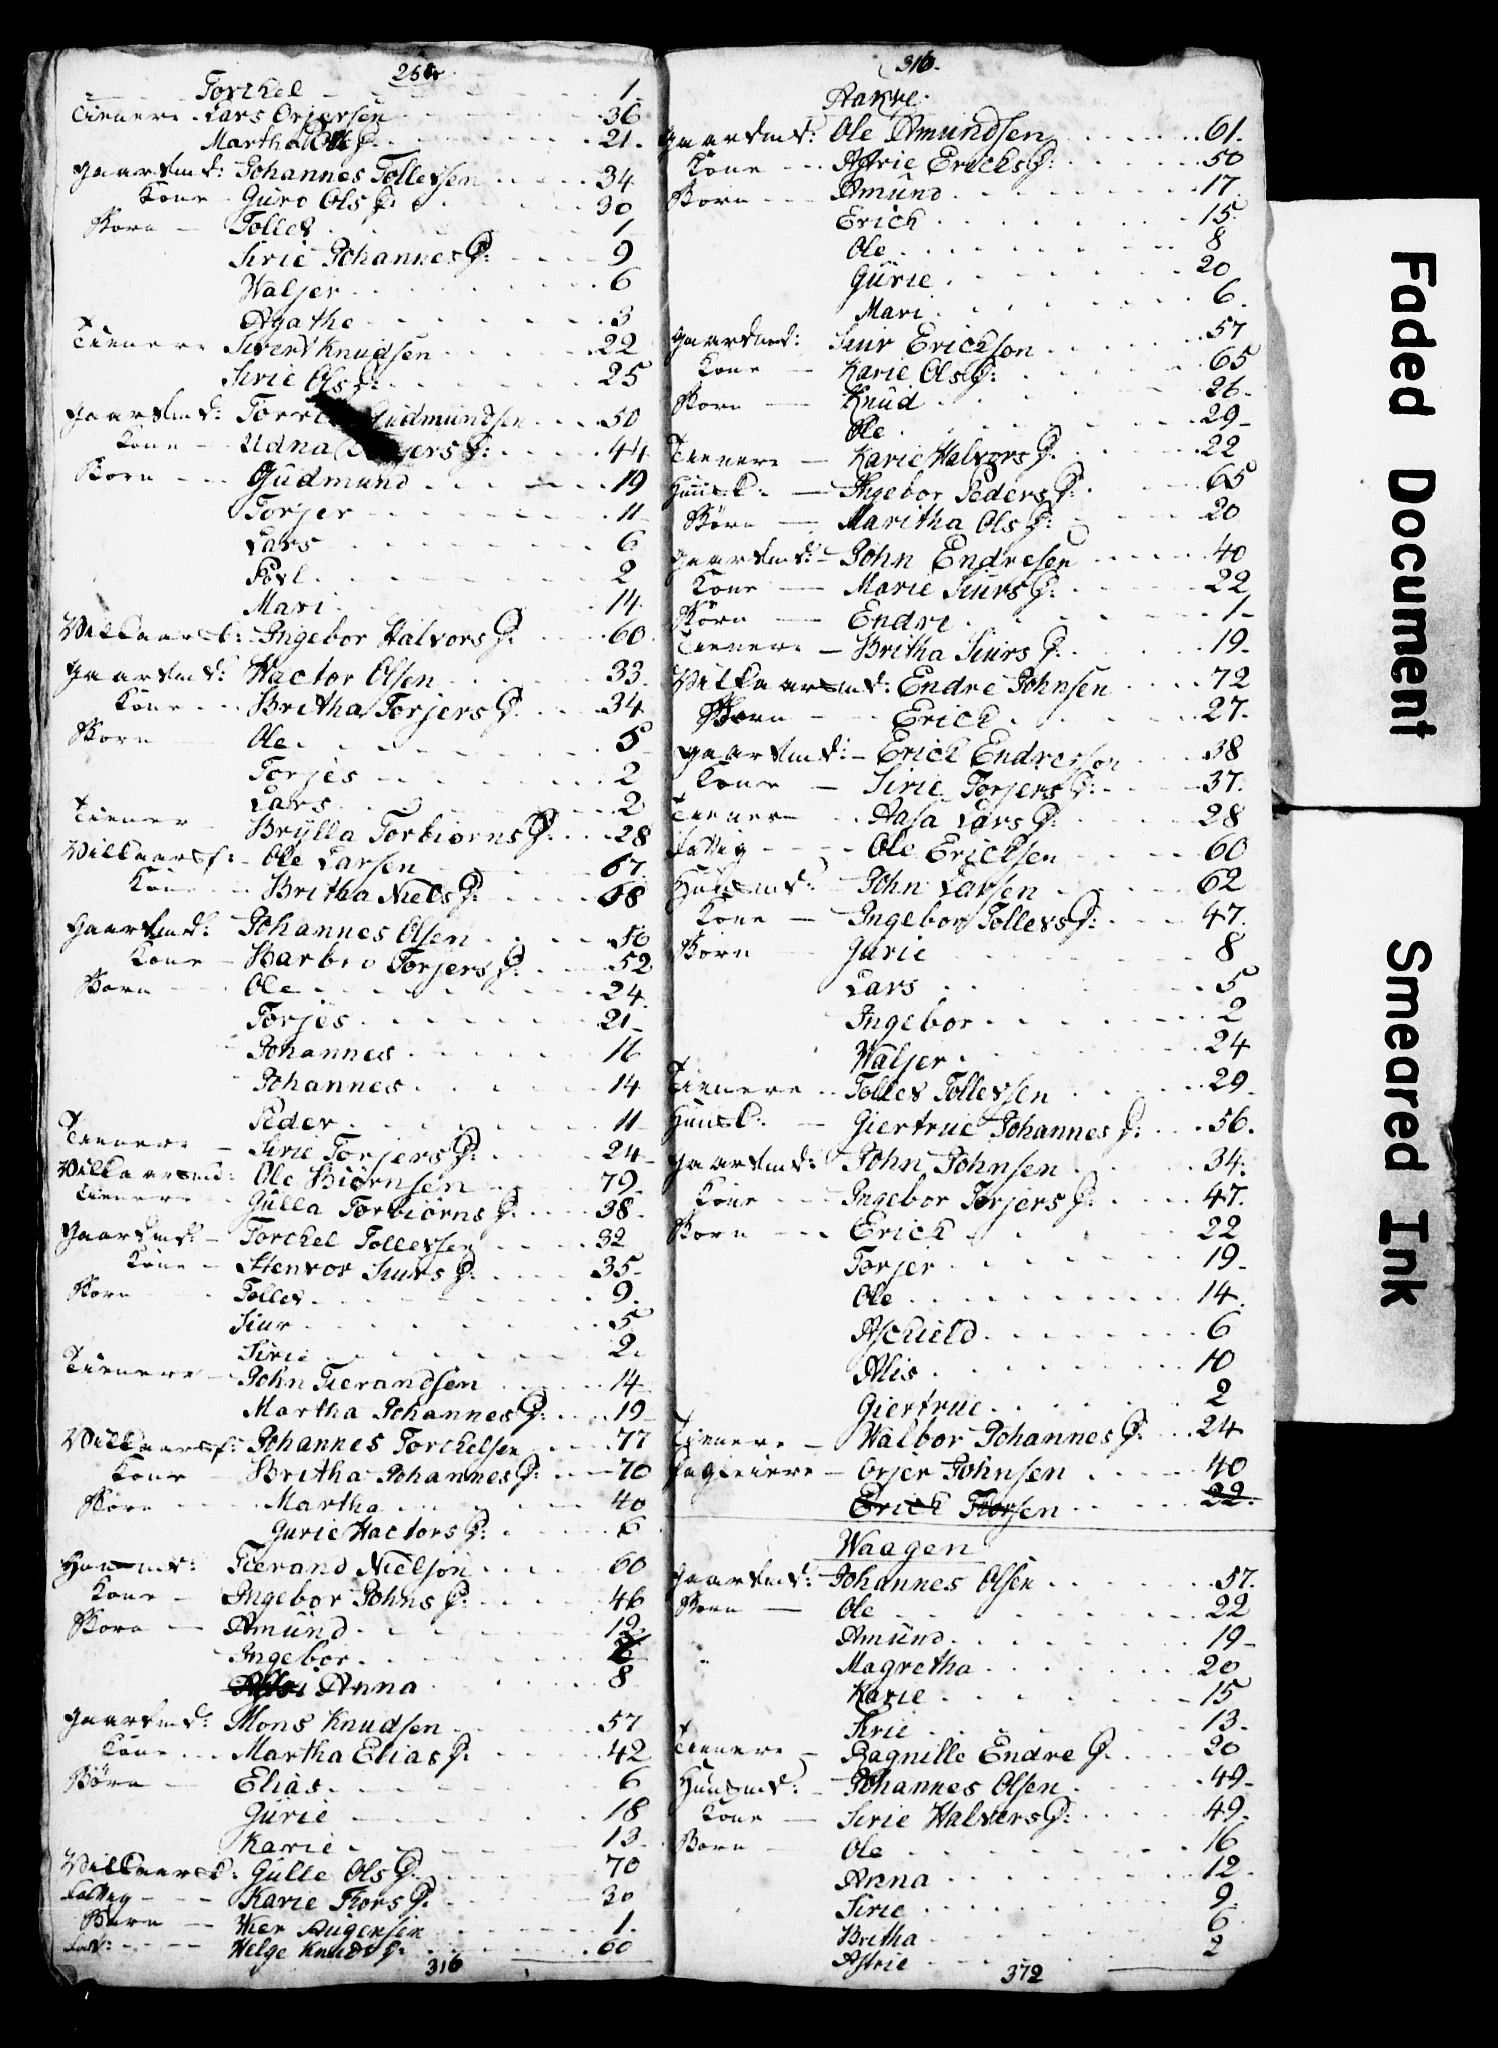 Torchel 1
Tienere Lars Orjersen 36
Martha D: 21
gaardmd: Johannes Tollefsen 34
Kone Guro Ols D: 30
Børn Tollef 1
Sirie Johannes D: 9
Waljer 6
Agathe 3
Tienere Sivert Knudsen 22
Sirie Ols D: 25
gaardmd: Gudmundsen 50
Kone Udna D: 44
Børn Gudmund 19
Torjer 11
Lars 6
Povl 2
Mari 14
Vilkaarsk: Ingebor Halvors D: 60
gaardmd: Hactor Olsen 33
Kone Britha Torjers D: 34
Børn Ole 5
Torjes 2
Lars 2
Tiener Brylla Torbiorns D: 28
Vilkaarsf: Ole Larsen 67
Kone Britha Niels D: 68
gaardmd: Johannes Olsen 56
Kone Barbro Torjers D: 52
Børn Ole 24
Torjes 21
Johannes 16
Johannes 14
Peder 11
Tienere Sirie Torjers D: 24
Vilkaarsmd: Ole Biørnsen 79
Tienere Gulla Torbiørns D: 38
gaardmd: Torchel Tollevsen 32
Kone Stenvor Siurs D: 35
Børn Tollev 9
Siur 5
Sirie 2
Tienere John Tierandsen 14
Martha Johannes D: 19
Vilkaarsf: Johannes Torchelsen 77
Kone Britha Johannes D: 70
Børn Martha 40
Gurie Hactors D: 6
Huusmd: Tierand Nielson 60
Kone Ingebor Johns D: 46
Børn Amund 12
Ingebor
Anna 8
gaardmd: Mons Knudsen 57
Kone Martha Elias D: 42
Børn Elias 6
Gurie 18
Karie 13
Vilkaarsk: Gulle Ols D: 70
fattig Karie Thors D: 30
Børn Augensen 1
fat: Helge Knuds D: 60
316
316
Aakre
gaardmd: Ole Amundsen 61
Kone Astrie Erichs D: 50
Børn Amund 17
Erich 15
Ole 8
Gurie 20
Mari 6
gaardmd: Siur Erichson 57
Kone Karie Ols D: 65
Børn Knud 26
Ole 29
Tienere Karie Halvors D: 22
Huusk: Ingebor Peders D: 65
Børn Maritha Ols D: 20
gaardmd: John Endresen 40
Kone Marie Siurs D: 22
Børn Endre 1
Tienere Britha Siurs D: 19
Vilkaarsmd: Endre Johnsen 72
Børn Erich 27
gaardmd: Erich Endreson 38
Kone Sirie Torjers D: 37
Tienere Aasa Lars D: 28
fattig Ole Erichsen 60
Huusmd: John Larsen 62
Kone Ingebor Tollevs D: 47
Børn Gurie 8
Lars 5
Ingebor 2
Waljer 24
Tienere Tollev Tollevsen 29
Huusk: Giertrue Johannes D: 56
gaardmd: John Johnsen 34
Kone Ingebor Torjers D: 47
Børn Erich 22
Torjer 19
Ole 14
Aschield 6
Alis 10
Giertrue 2
Tienere Walbor Johannes D: 24
Orjer Johnsen 40
Erich Thorsen 22
Waagen
gaardmd: Johannes Olsen 57
Børn Ole 22
Amund 19
Magretha 20
Karie 15
Sirie 13
Tienere Ragnille Endre D: 20
Huusmd: Johannes Olsen 49
Kone Sirie Halvers D: 49
Børn Ole 16
Anna 12
Sirie 9
Britha 6
Astrie 2
372
Faded Document
Smeared Ink